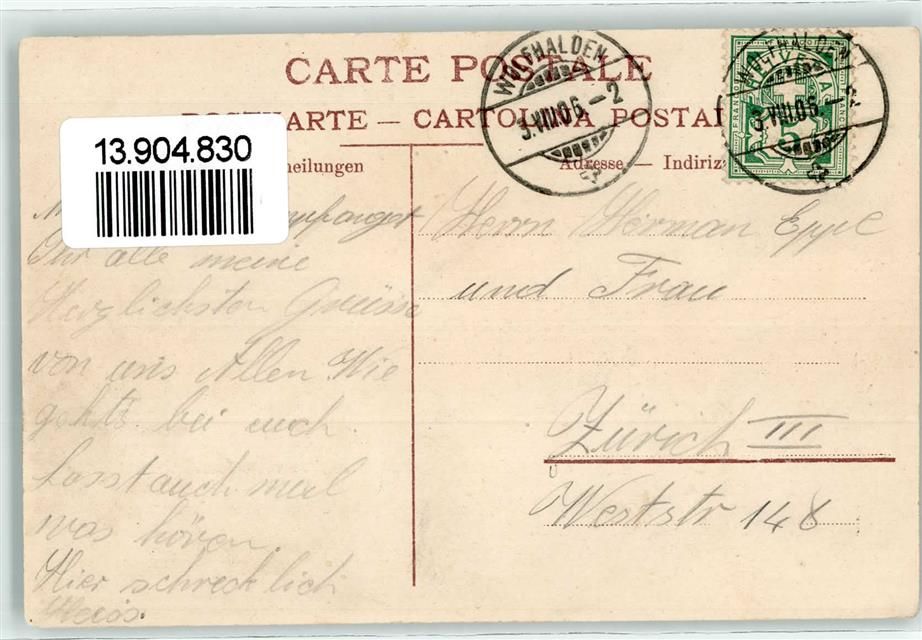 CARTE POSTALE
POSTKARTE — CARTOLINA POSTALE
13.904.830
WOLFHALDEN
3.VIII.06.-2
WOLFHALDEN
3.VIII.06.-2
5
FRANCO
heilungen
Adresse — Indirizzo
empfanget
Ihr alle meine
Herzlichsten Grüsse
von uns Allen Wie
gehts bei euch.
Lasst auch mal
was hören.
Hier schrecklich
Heiss.
Herrn Herman Eppe
und Frau
Zürich III
Weststr 148